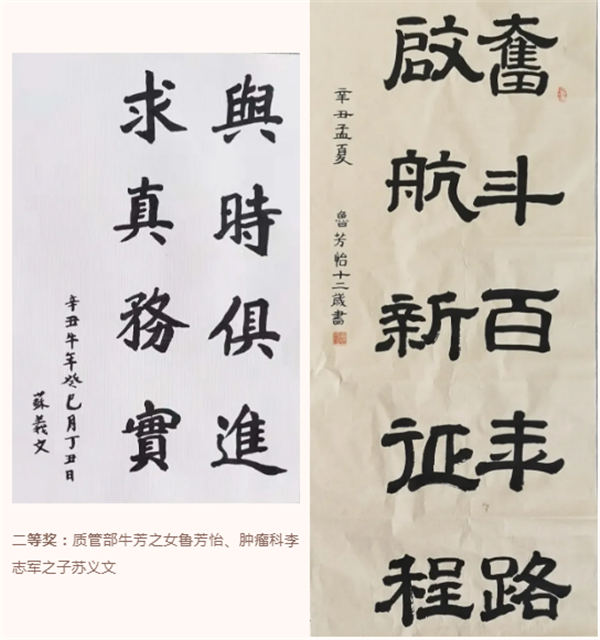 與時俱進
求真務實
辛丑牛年癸巳月丁丑日
蘇義文
奮斗百年路
啟航新征程
辛丑孟夏
魯芳怡十二歲書
二等奖：质管部牛芳之女鲁芳怡、肿瘤科李
志军之子苏义文